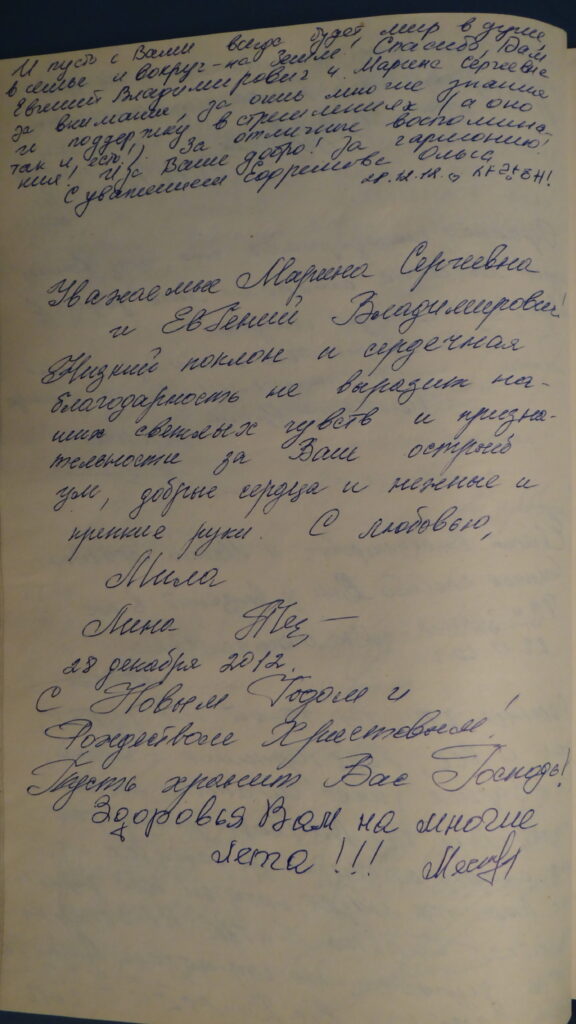 И пусть с Вами всегда будет мир в душе,
в семье и вокруг - на Земле! Спасибо, Вам
Евгений Владимирович и Марина Сергеевна
за внимание, за очень многие знания
и поддержку в стремлениях (а оно
так и есть!). За отличные воспомина-
ния! И за Ваше добро! За гармонию!
С уважением Софронова Ольга
28.12.12.
Уважаемые Марина Сергеевна
и Евгений Владимирович!
Низкий поклон и сердечная
благодарность не выразит на-
ших светлых чувств и призна-
тельности за Ваш острый
ум, добрые сердца и нежные и
крепкие руки. С любовью,
Мила
Лина
28 декабря 2012.
С Новым Годом и
Рождеством Христовым!
Пусть хранит Вас Господь!
Здоровья Вам на многие
лета!!!